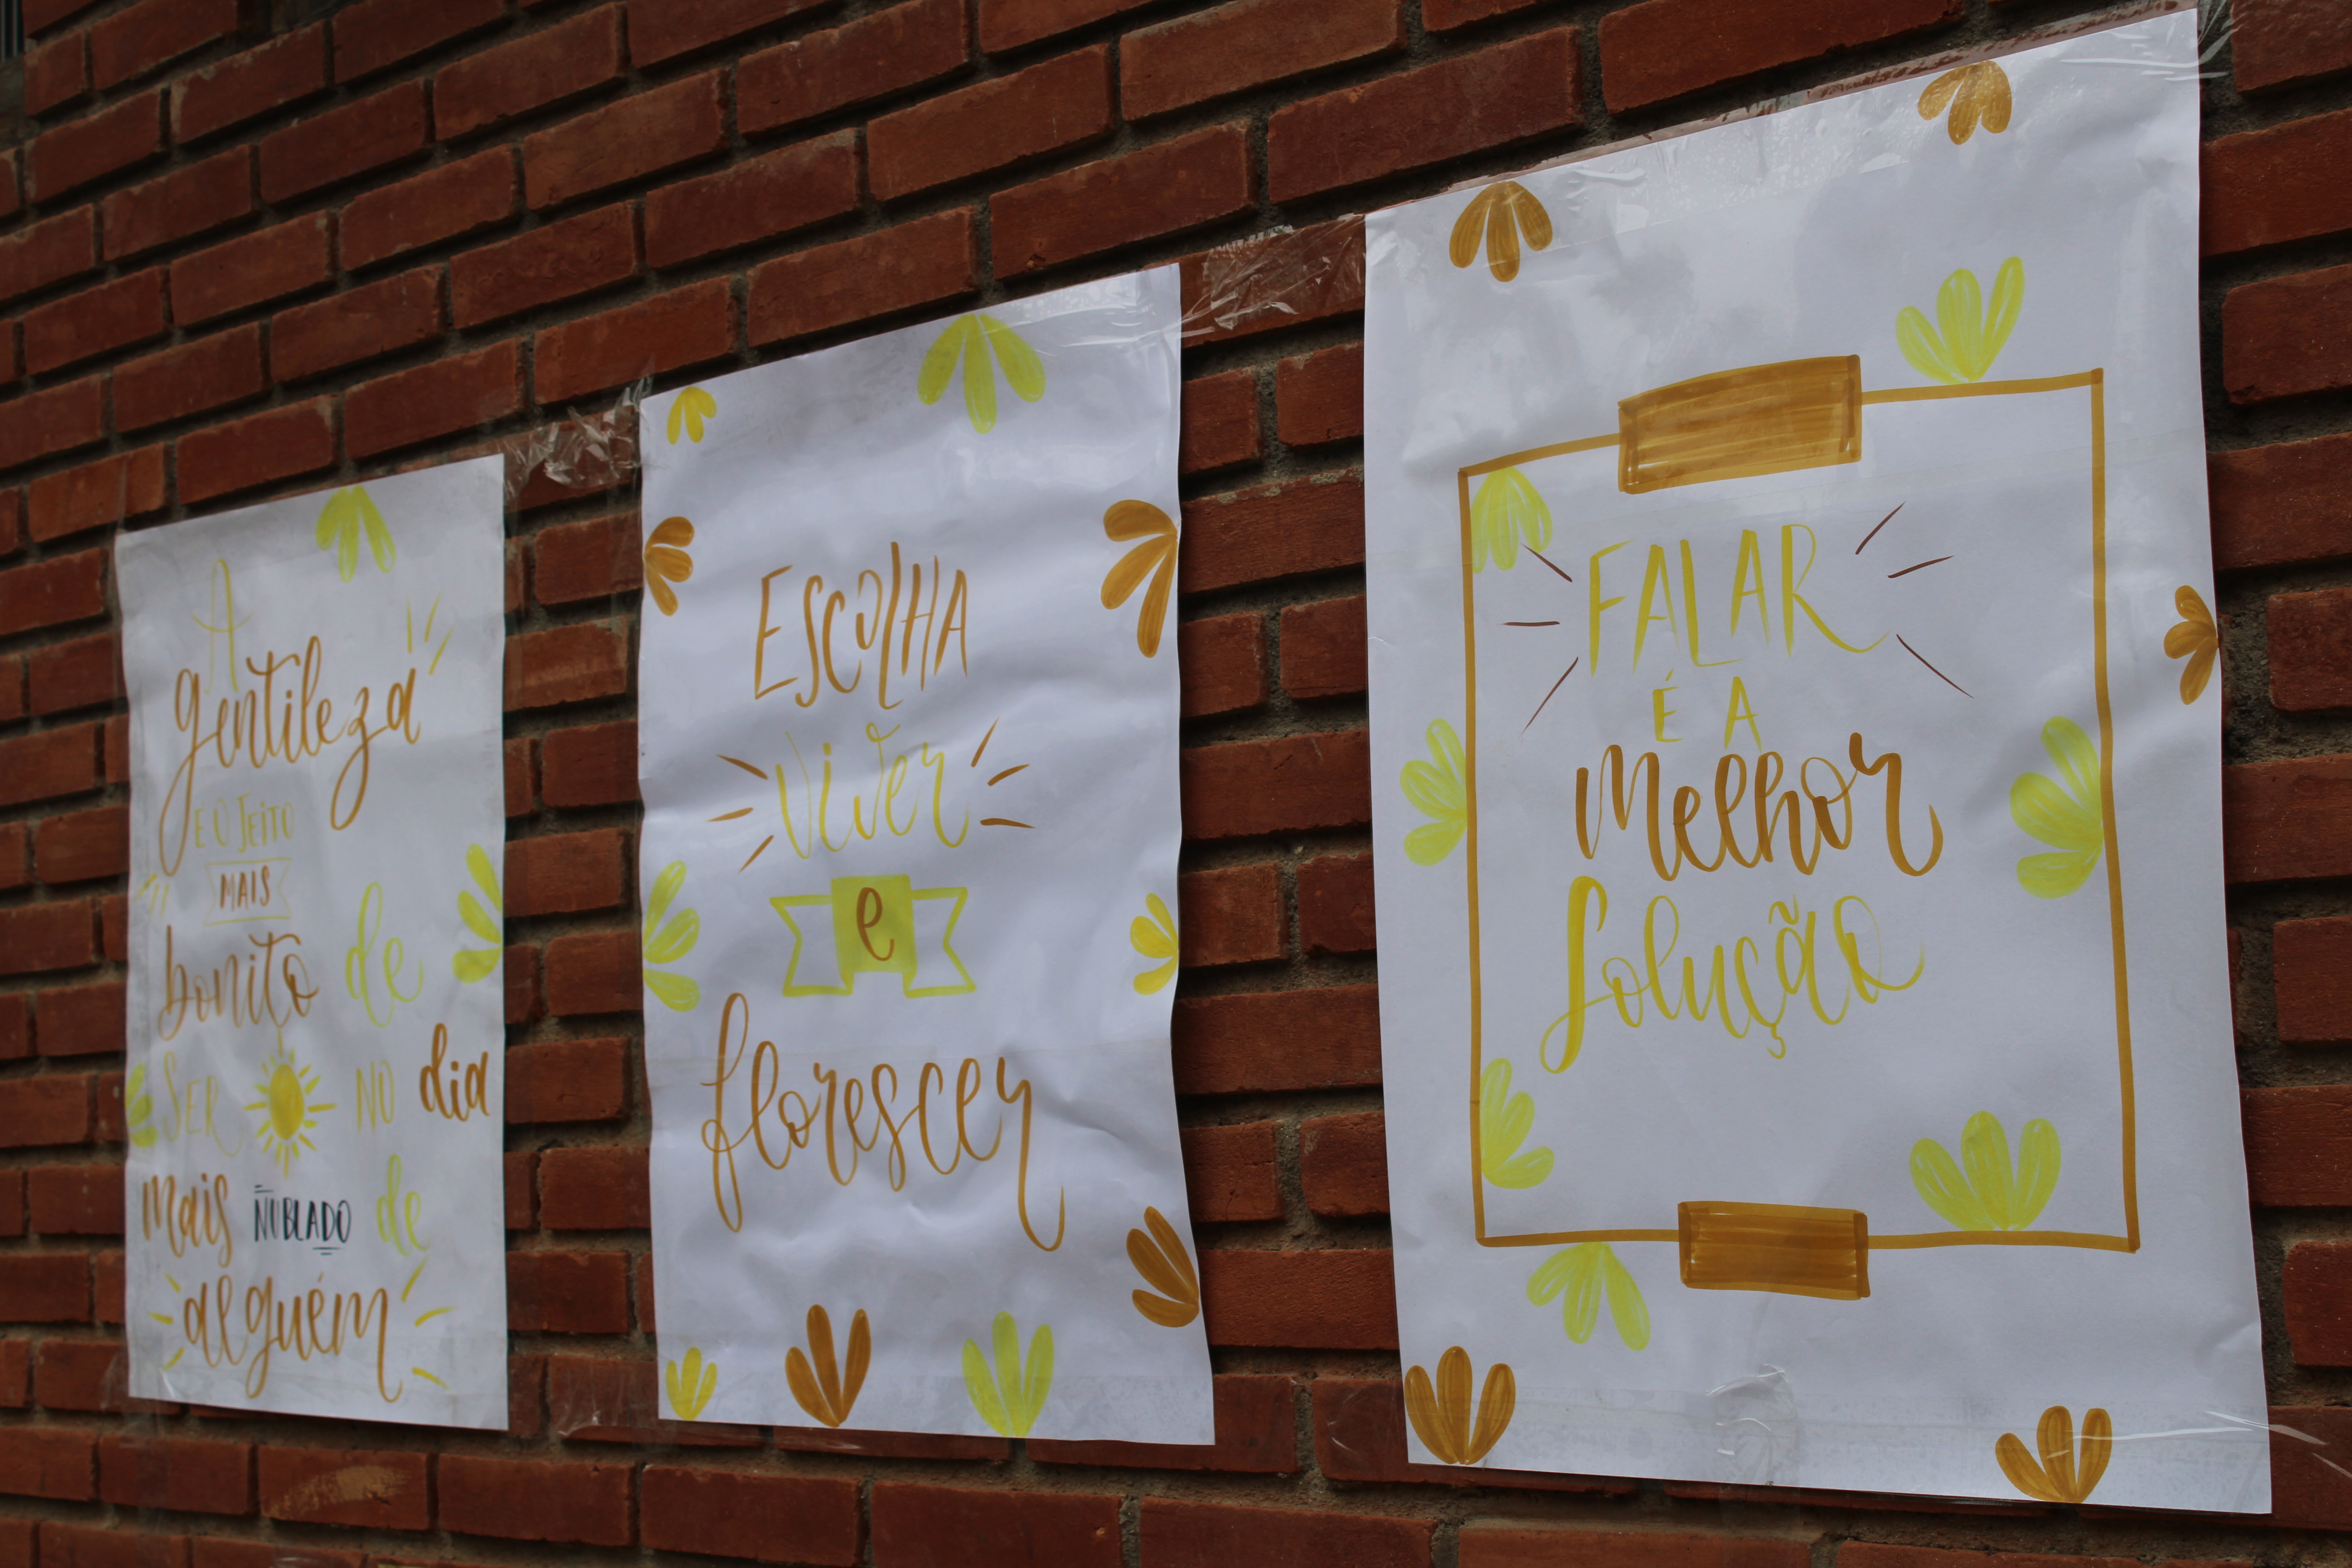 A
gentileza
É O JEITO
MAIS
bonito de
SER NO dia
mais NUBLADO de
alguém
ESCOLHA
viver
e
florescer
FALAR
É A
melhor
solução